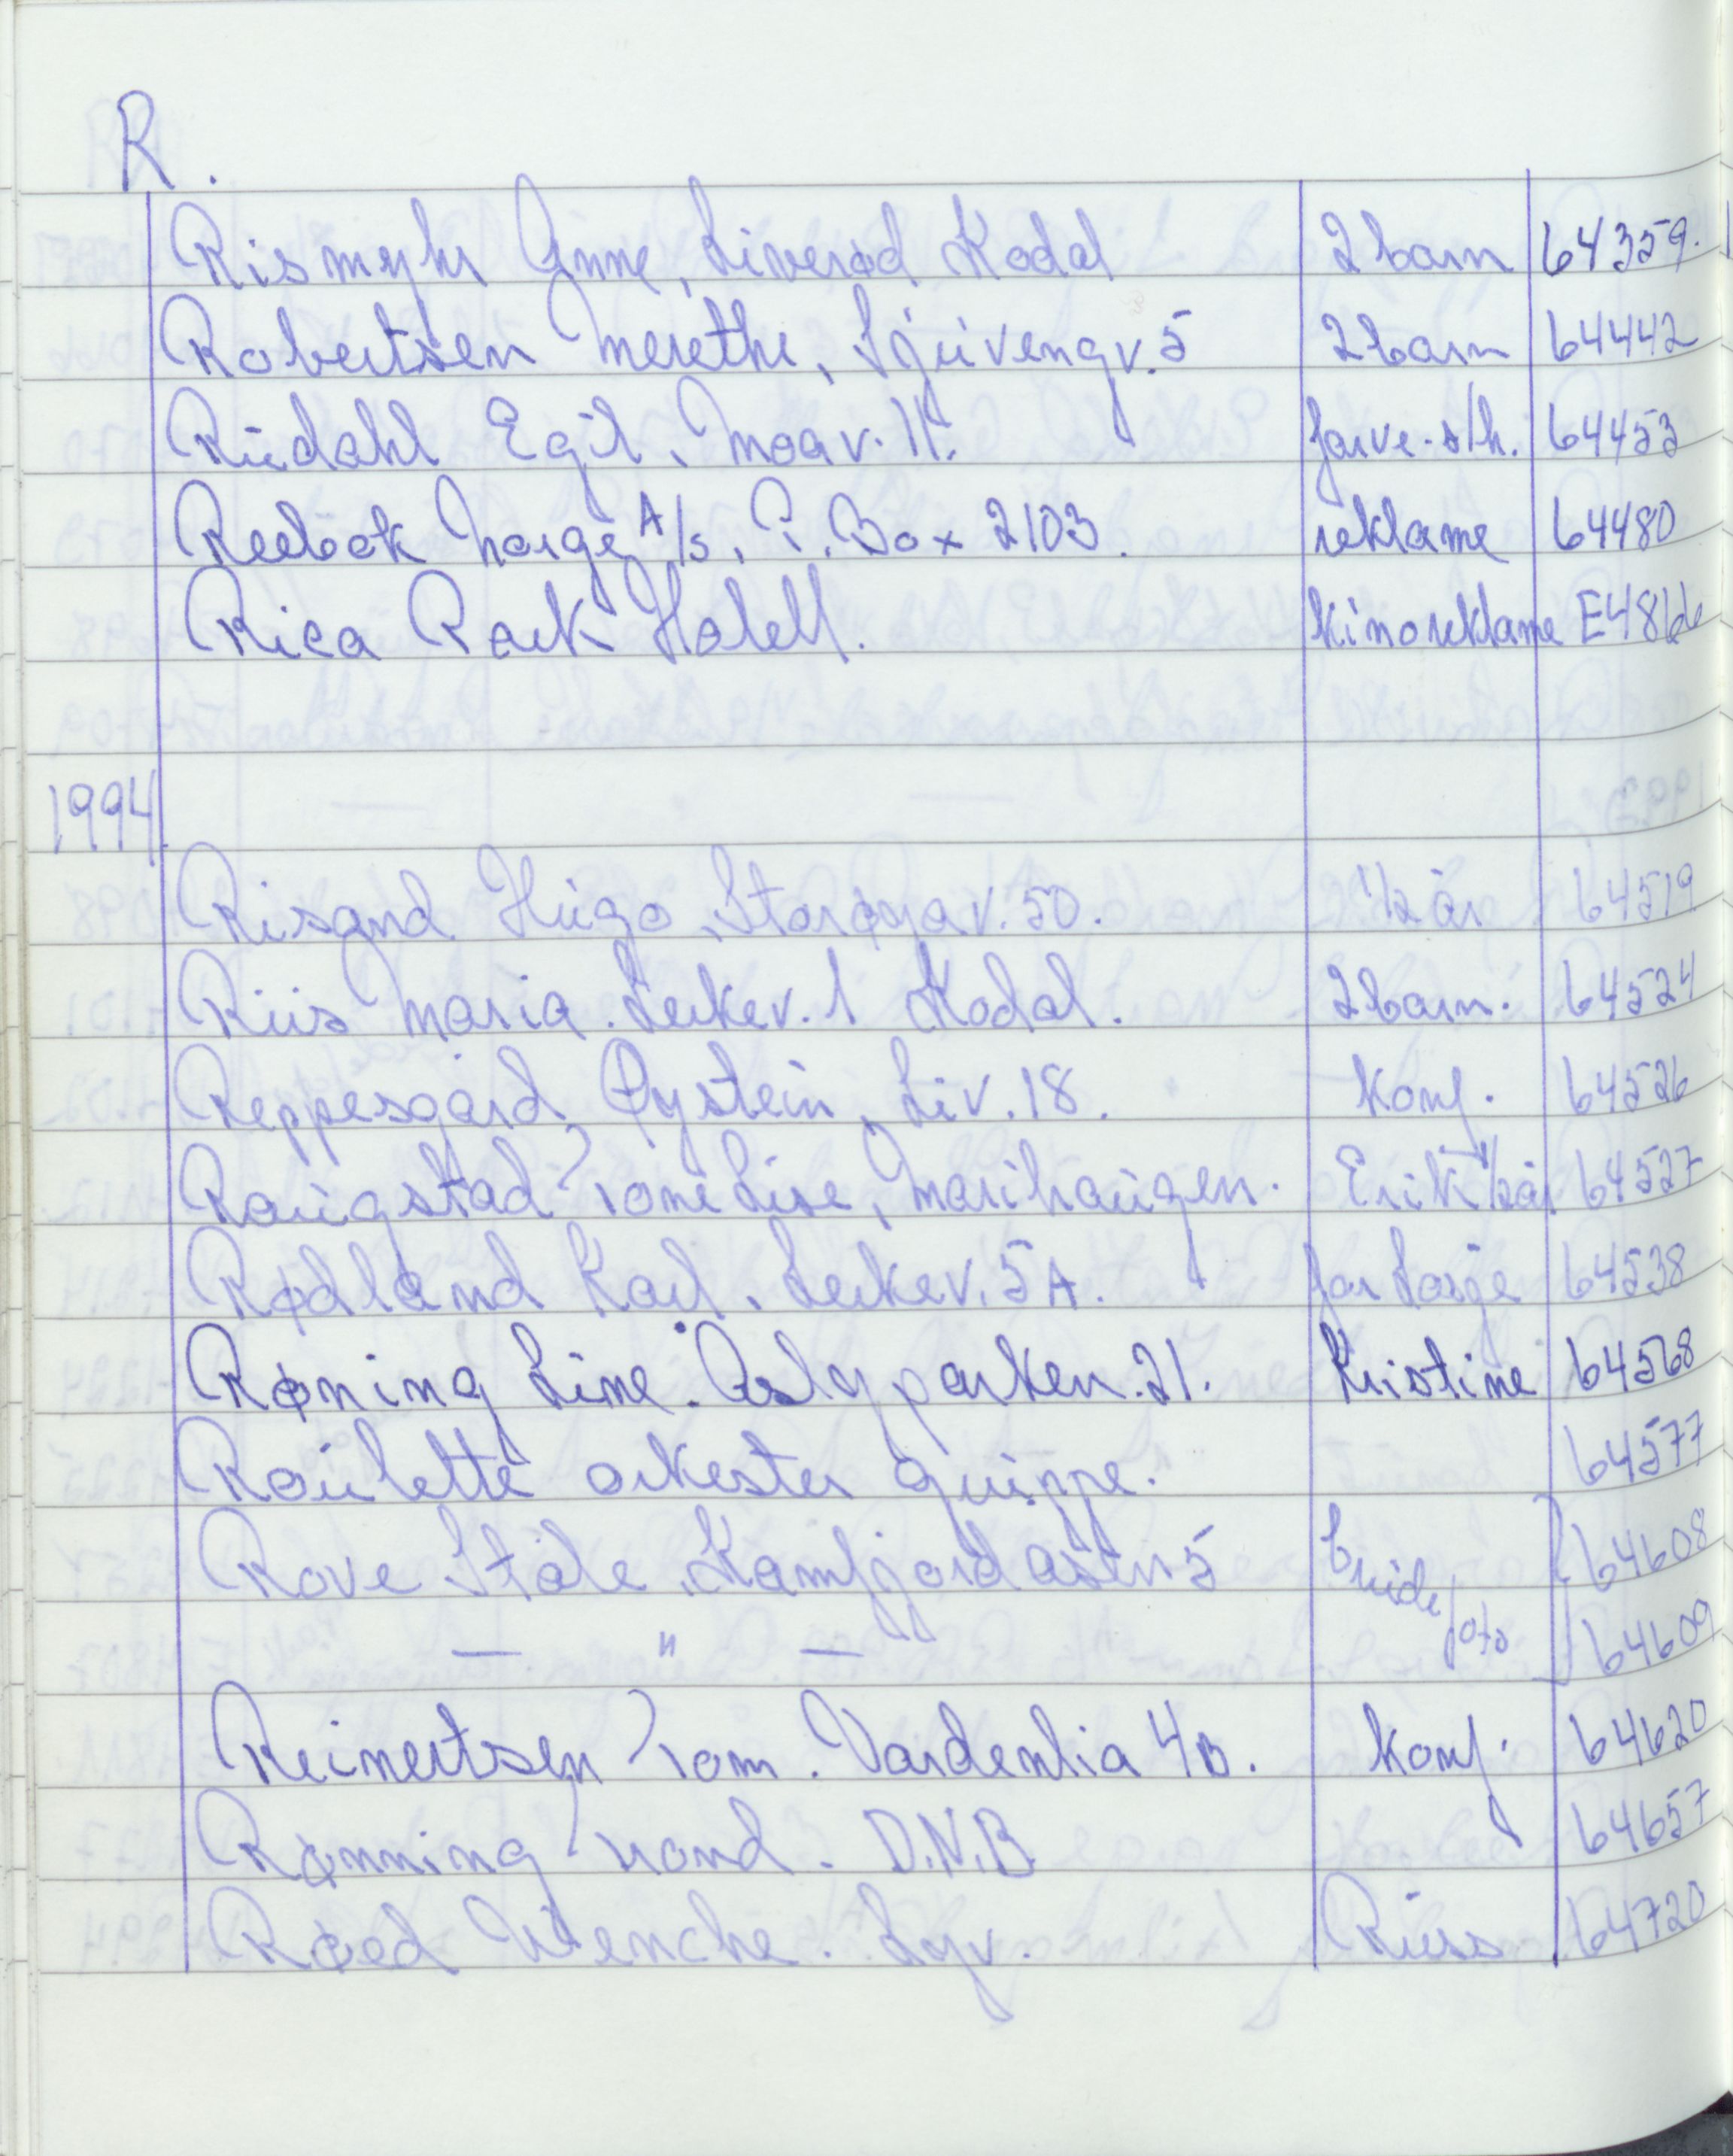 R.
Rismyhr Anne, Liverød Kodal 2 barn 64359.
Robertsen Merethe, Sjuvengv. 5 2 barn 64442
Rudahl Egil, Moav. 11. farve-s/h. 64453
Reebok Norge A/S, P. Box 2103. reklame 64480
Rica Park Hotell. kinoreklame E4816
1994.
Risand Hugo, Storøyav. 50. 1/2 år 64519
Riis Maria. Lerkev. 1 Kodal. 2 barn. 64524
Reppesgård Øystein, Liv. 18. Konf. 64526
Raugstad Tone Lise, Marihaugen. Erik 1/2 år 64527
Rødland Karl, Lerkev. 5A. 64538
Røning Line. Åslyparken. 21. Kristine 64568
Roulette orkester gruppe. 64577
Rove Ståle, Kamfjordåsen 5 brude/foto 64608
— " — 64609
Reinertsen Tom. Vardenlia 4B. Konf. 64620
Rønning Trond. D.N.B 64657
Røed Wenche. Lyv. 64720